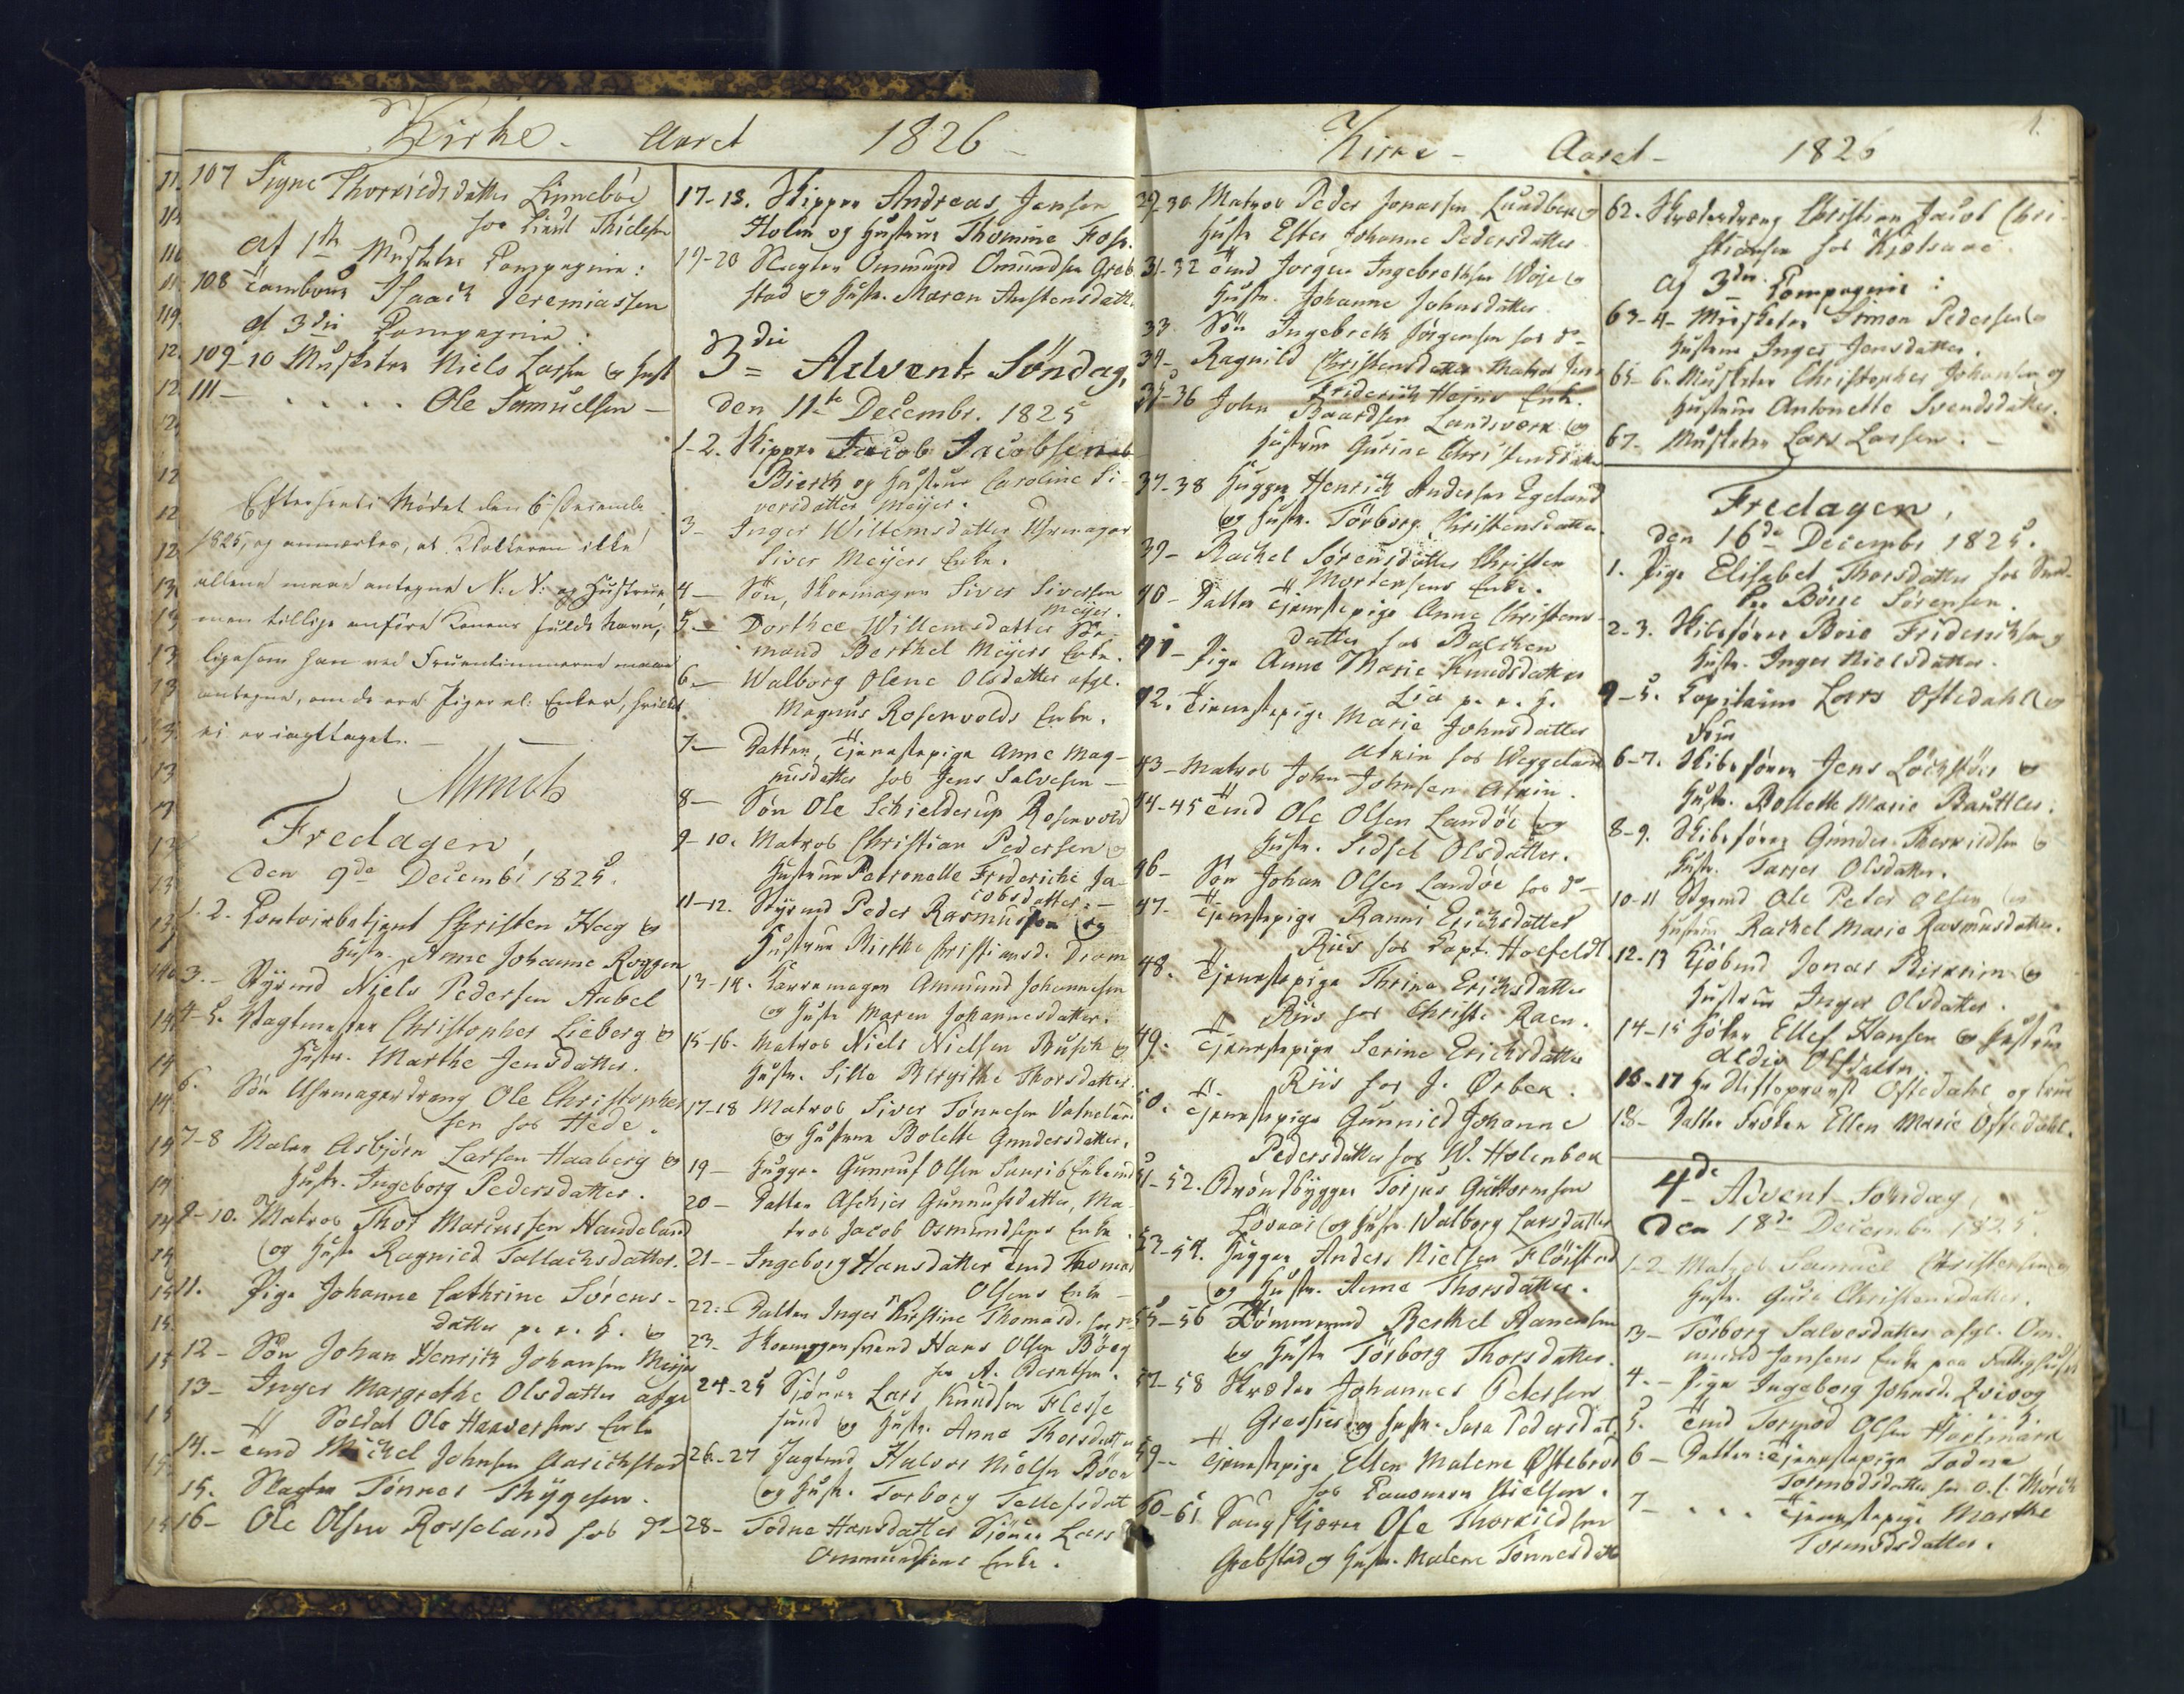 Kirke - Aaret 1826 -
107 Signe Thorkildsdatter Linneböe
hos Lieut Thidesen
af 1ste Musketer Compagnie:
108 Tambour Isaack Jeremiassen
af 3die Compagnie:
109-10 Musketer Niels Larsen og Hust
111 - . . . . . Ole Samuelsen -
Eftersenti Mödet den 6 Decembr
1825, og anmærkes, at Klokkeren ikke
allene maae antegne N: N: og Hustrue,
men tillige anföre Konens fulde Navn,
ligesom han ved Fruentimmerne maae
antegne, om de ere Piger el: Enker, hvilket
ei er iagttaget. -
Munch
Fredagen,
den 9de Decembr 1825.
1. 2. Contoirbetjent Christen Heeg og
Hustr. Anne Johanne Roggen
3. - Styrmd Niels Pedersen Aabel
4-5. Vagtmester Christopher Lieberg og
Hustr. Marthe Jensdatter.
6. Sön Uhrmagerdreng Ole Christopher
sen hos Hede.
7-8 Maler Asbjörn Larsen Haaberg og
Hustr. Ingeborg Pedersdatter.
9-10. Matros Thor Marcussen Haudeland
og Hustr Ragnild Tallachsdatter.
11. Pige Johanne Cathrine Sörens-
datter p. e. H. og
12 - Sön Johan Henrich Johansen Meyer
13 - Inger Margrethe Olsdatter afge
Soldat Ole Haaversens Enke
14. - Tmd Michel Johnsen Aarickstad
15. Slagter Tönnes Thygesen.
16 - Ole Olsen Rosseland hos do
17-18. Skipper Andreas Jensen
Holm og Hustrue Thomine Foss.
19-20 Slagter Ommund Omundsen Greb
stad og Hustr. Maren Austensdatt
3die Advent Söndag,
den 11te Decembr. 1825
1-2. Skipper Jacob Jacobsen
Bierck og Hustrue Caroline Si-
versdatter Meyer.
3 - Inger Willemsdatter Uhrmager
Siver Meyers Enke.
4 - Sön, Skoemager Siver Siversen
Meyer.
5 - Dorthee Willemsdatter
mand Berthel Meyers Enke.
6. - Walborg Olene Olsdatter afgl.
Magnus Rosenvolds Enke.
7. - Datter, Tjenestepige Anne Mag-
nusdatter hos Jens Salvesen -
8 - Sön Ole Schielderup Rosenvold
9-10. Matros Christian Pedersen og
Hustrue Petronelle Friderike Ja-
cobsdatter. -
11-12. Styrmd Peder Rasmussen og
Hustrue Birthe Christiansd. Dram
13-14. Garvemager Ammund Johannesen
og Hustr Maren Johannesdatter.
15-16. Matros Niels Nielsen Busch og
Hustr. Sille Birgithe Thorsdatter.
17-18 Matros Siver Tönnesen Vatneland
og Hustrue Bolette Gundersdatter.
19 - Hugger Gunnuf Olsen Enkemd
20 - Datter Aschier Gunnufsdatter, Ma-
tros Jacob Osmundsens Enke.
21 - - Ingeborg Hansdatter Tmd Thomas
Olsens Enke -
22. - Datter Inger Kirstine Thomasd. hos do
23 - Skomagersvend Hans Olsen Böeg
hos A. Berntsen.
24-25 Sjömd Lars Knudsen Flesse
sund og Hustr. Anne Thorsdatter
26-27 Jagtmd Halvor Nielsen Böen
og Hustr. Torborg Tellefsdat
28 - Todne Hansdatter Sjömd Lars
Ommundsens Enke.
Kirke - Aaret - 1826
29-30. Matros Peder Jonassen Lundbeck og
Hustr Ester Johanne Pedersdatter
31-32 Tmd Jörgen Ingebrethsen Woie og
Hustr. Johanne Johnsdatter
33 Sön Ingebreth Jörgensen hos do -
34 - Ragnild Christensdatter Matros Jens
Friderich Heins Enke.
35-36 John Baardsen Landsverk og
Hustrue Gurine Christensdatter
37-38 Hugger Henrich Andersen Egeland
og Hustr. Törborg Christensdatter.
39 - Rachel Sörensdatter Christen
Mortensens Enke.
40 - Datter Tjenestepige Anne Christens
datter hos Balchen
41 - Pige Anne Marie Knudsdatter
Lia p. e. H.
42. Tienestepige Marie Johnsdatter
Atkin hos Weggeland
43 - Matros John Johnsen Atkin.
44-45 Tmd Ole Olsen Landöe og
Hustr. Sidsel Olsdatter.
46 - Sön Johan Olsen Landöe hos do -
47. Tjenestepige Ranni Erichsdatter
Riis hos Capt. Hoefeldt.
48. Tjenestepige Thrine Erichsdatter
Riis hos Christe Raen.
49. Tjenestepige Serine Erichsdatter
Riis hos J. Örbek.
50. Tjenestepige Gunnild Johanne
Pedersdatter hos W. Holenbek
51-52. Bröndbygger Torjus Guttormsen
Lövaas og Hustr. Walborg Larsdatter
53-54. Hugger Anders Nielsen Flöistad
og Hustr. Anne Thorsdatter.
55-56 Tömmermd Berthel Hansen
og Hustr Törborg Thorsdatter.
57-58 Skræder Johannes Petersen
Gressies og Hustr. Sara Pedersdat.
59 - - Tjenestepige Ellen Malene Östebröd
hos Nielsen.
60-61 Saugskjærer Ole Thorkildsen
Grebstad og Hustr. Malene Tönnesdatt
62. Skræderdreng Christian Jacob Chri-
stiansen hos Kjelsaae.
af 3die Compagnie:
63-4 - Musketer Simon Pedersen og
Hustrue Inger Jensdatter.
65-6. Musketer Christopher Johansen og
Hustrue Antonette Svendsdatter.
67 - Musketer Lars Larsen. -
Fredagen,
den 16de Decembr 1825.
1. Pige Elisabet Thorsdatter hos
Böie Sörensen.
2-3. Skibsförer Boie Fridericksen og
Hustr. Inger Nielsdatter.
4-5. Capitaine Lars Oftedahl og
Frue
6-7. Skibsförer Jens Löchstöer og
Hustr. Bollette Marie Bauttler.
8-9. Skibsförer Gunder Therkildsen og
Hustr. Tarjer Olsdatter.
10-11 Styrmd Ole Peter Olsen og
Hustrue Rachel Marie Rasmusdatter.
12-13 Kjöbmd Jonas Birkrim og
Hustrue Inger Olsdatter.
14-15 Höker Ellef Hansen og Hustrue
Aldis Olsdatter.
16-17 Hr Stiftsprovst Oftedahl og Frue
18 - Datter Fröken Ellen Marie Oftedahl.
4de Advent-Söndag,
den 18de Decembr 1825.
1-2. Matros Samuel Christensen og
Hustr. Guri Christensdatter.
3 - Törborg Salvesdatter afgl. Om-
mund Jansens Enke paa Fattighuset
4. - Pige Ingeborg Johnsd. Qvivog
5. Tmd Tormod Olsen Hartmark
6 - Datter: Tjenestepige Todne
Tormodsdatter hos O. C. Mörch
7 - . . . Tjenestepige Marthe
Tormodsdatter.